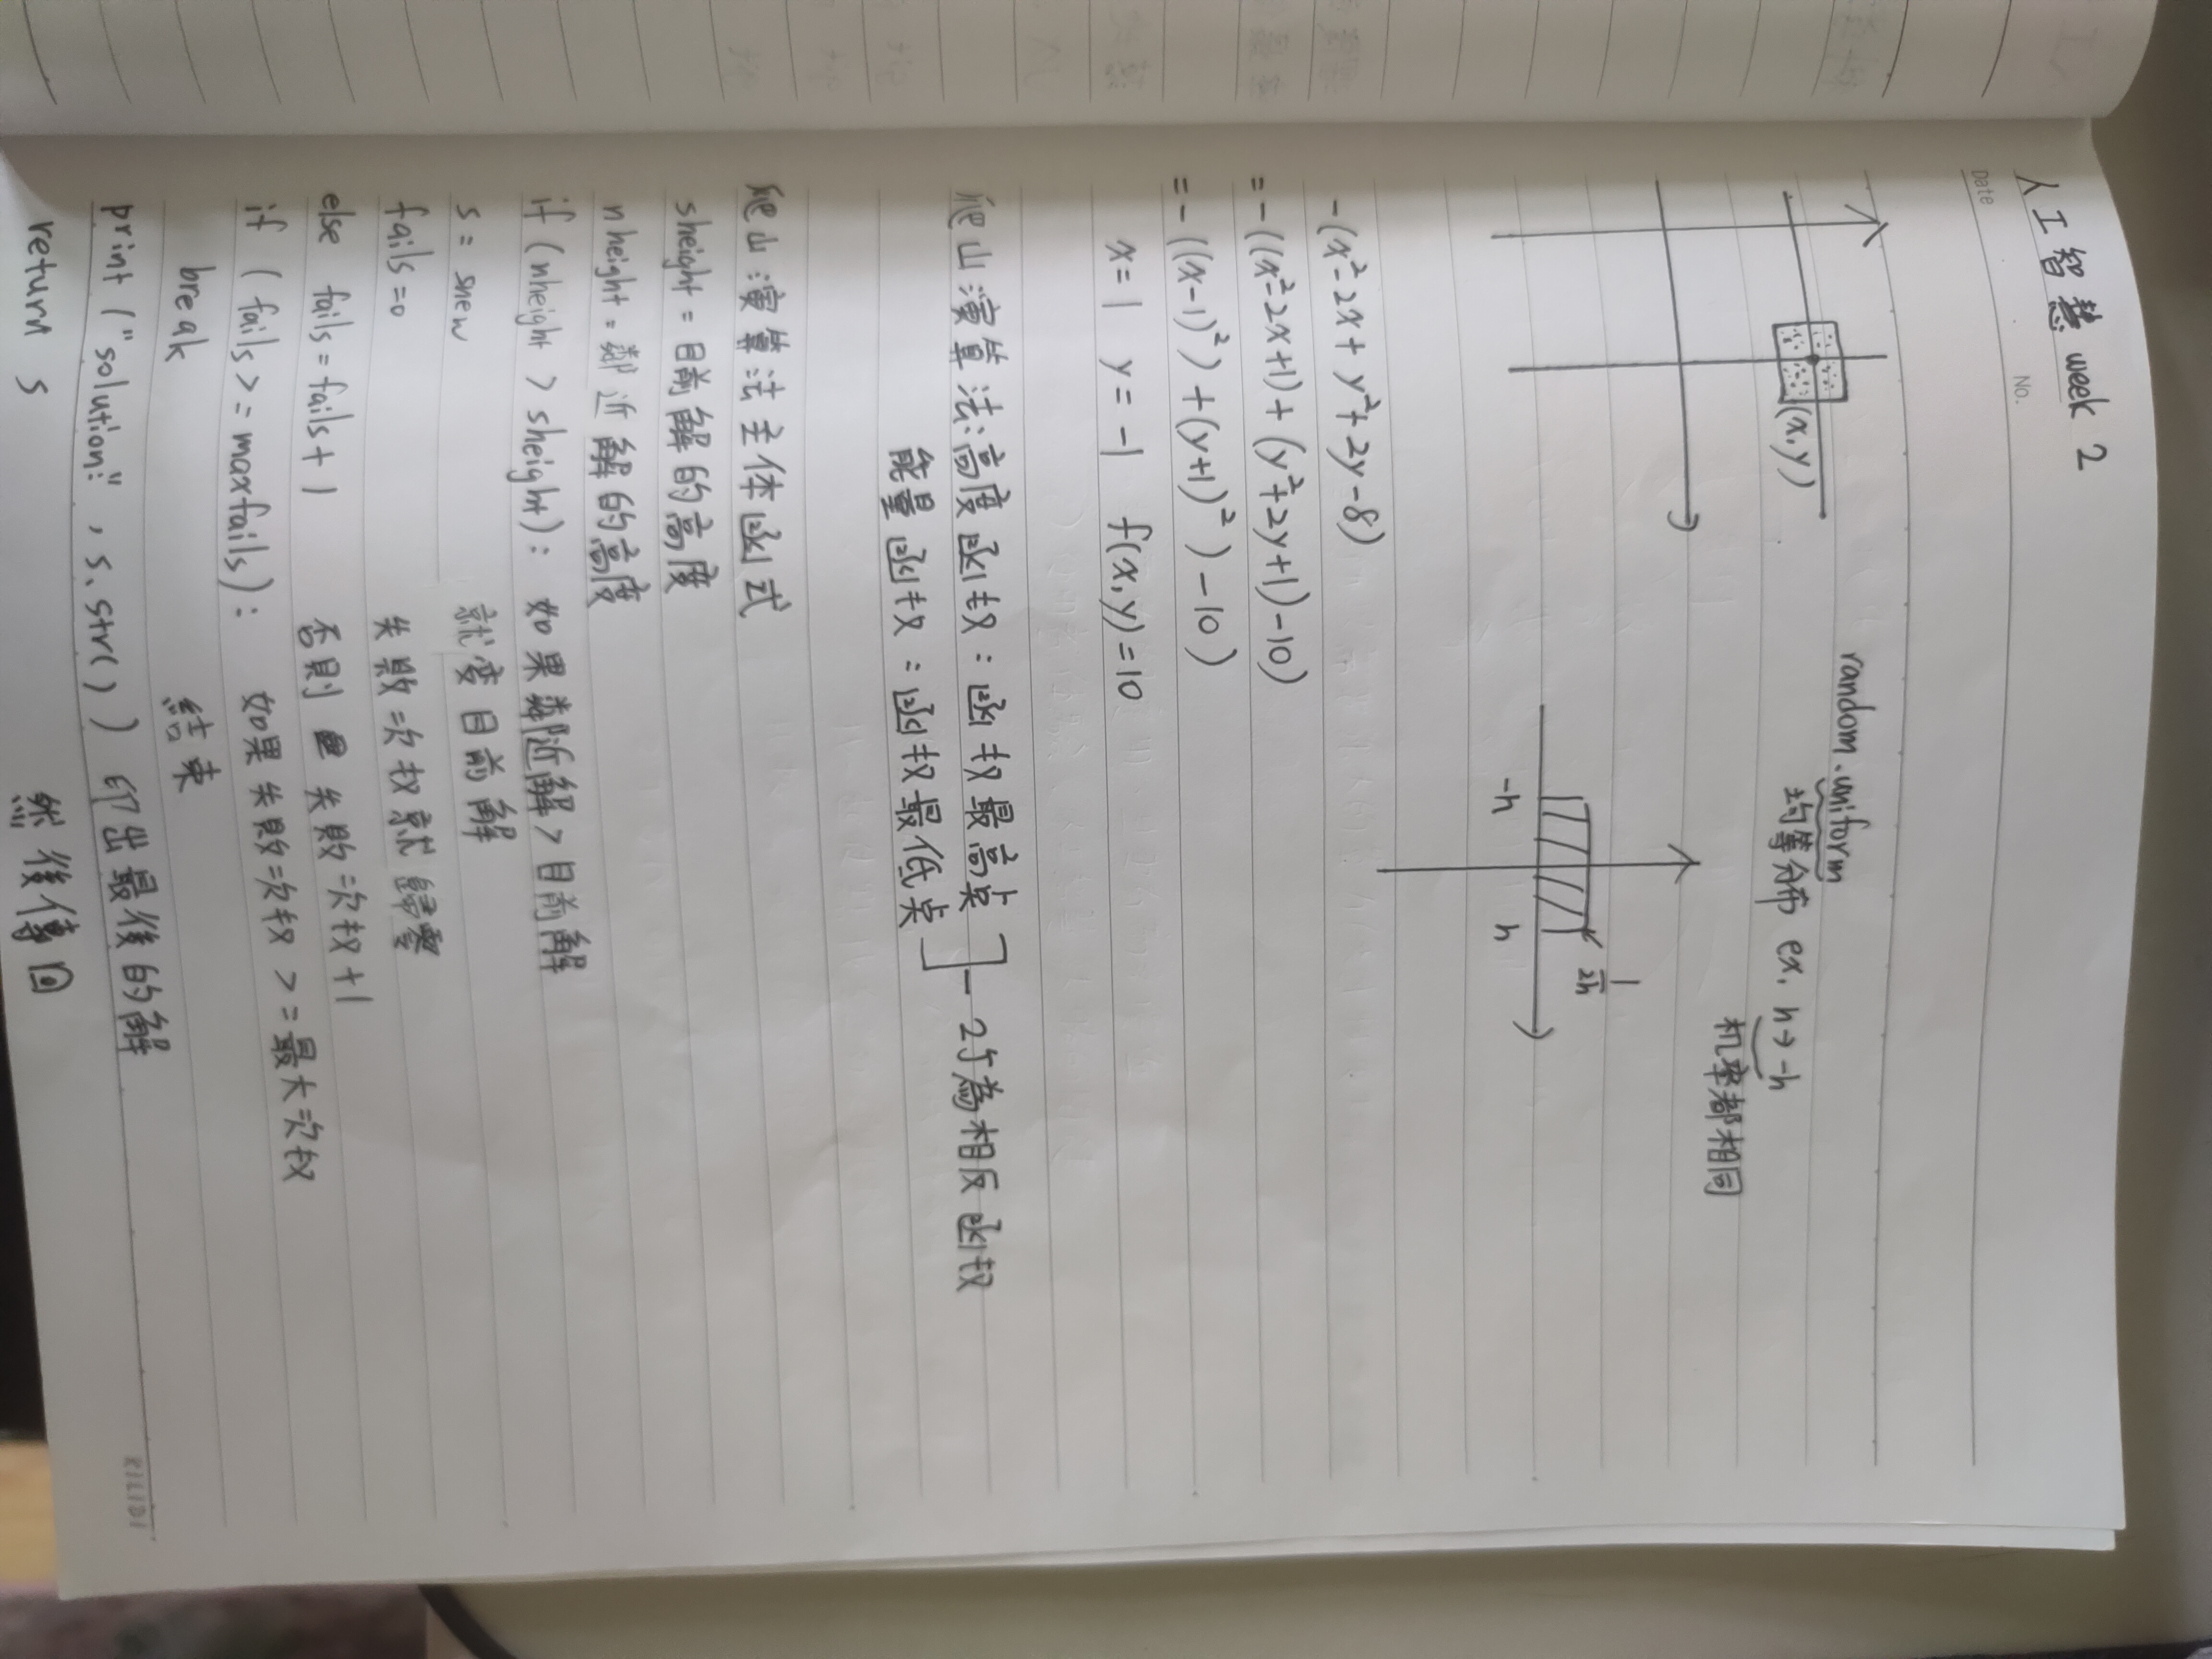 人工智慧 week 2
No.
Date
(x,y)
random.uniform
均等分布 ex. h→-h
机率都相同
1/2h
-h h
-(x²-2x+y²+2y-8)
=-((x²-2x+1)+(y²+2y+1)-10)
=-((x-1)²)+(y+1)²)-10)
x=1 y=-1 f(x,y)=10
爬山演算法:高度函数:函数最高点
能量函数:函数最低点
2个為相反函数
爬山演算法主体函式
sheight=目前解的高度
nheight=鄰近解的高度
if (nheight > sheight): 如果鄰近解>目前解
s = snew 就变目前解
fails=0 失敗次数就歸零
else fails=fails+1 否則 失敗次数+1
if (fails>=maxfails): 如果失敗次数>=最大次数
break 結束
print ("solution:", s.str()) 印出最後的解
return s 然後傳回